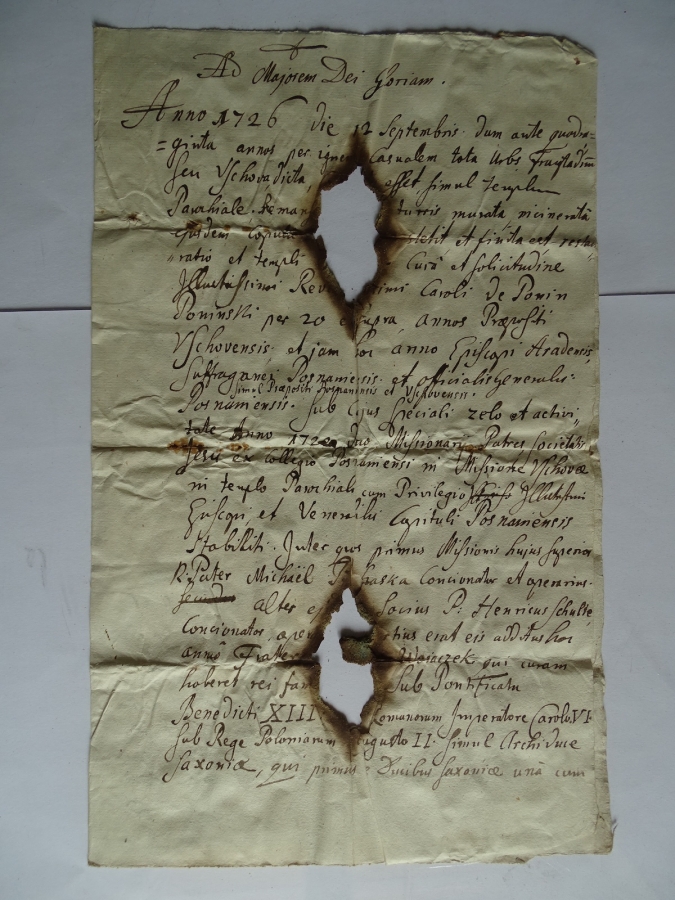 Ad Majorem Dei Gloriam.
Anno 1726 die 12 Septembris dum ante quadra=
=ginta annos per igne Casualem tota Urbs
seu Vschova dicta, esset, simul templum
Parochiale. turris murata incinerata
ejusdem et finita est restau
=ratio et templi Cura et solicitudine
Illustrissimi Rev imi Caroli de Ponin
Poninski per 20 et supra annos Præpositi
Vschovensis et jam hoc anno Episcopi Aradensis,
Suffraganei Posnaniensis et officialis generalis
simul Præpositi Posnaniensis et Vschovensis.
Posnaniensis. Sub cujus speciali zelo et activi
tate Anno duo Missionarii Patres Societatis
Jesu ex Collegio Posnaniensi in Missione Vschovæ
in templo Parochiali cum Privilegio Illustrissimi
Episcopi, et Venerabilis Capituli Posnaniensis
stabiliti. Inter quos primus Missionis hujus superior
R. Pater Michaël Concionator et operarius.
alter e Socius P. Henricus Schulte
Concionator, ope rtius erat eis additus hoc
anno Frater Woiaczek qui curam
haberet rei fam Sub Pontificatu
Benedicti XIII Romanorum Imperatore Carolo VI
Sub Rege Poloniarum ugusto II. simul Archiduce
Saxoniæ, qui primus Ducibus Saxoniæ unà cum